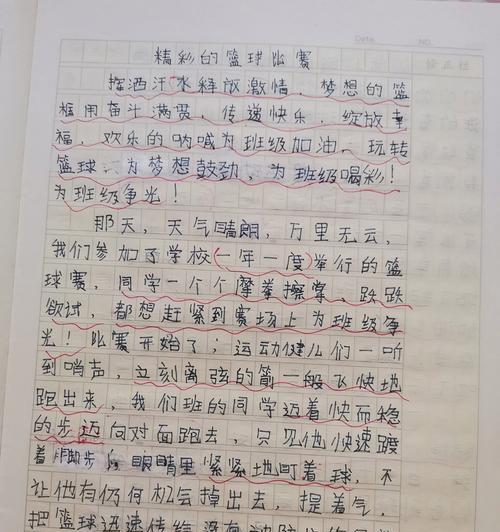 Date
NO.
精彩的篮球比赛
修正栏
挥洒汗水释放激情，梦想的篮
框用奋斗满贯，传递快乐，绽放幸
福，欢乐的呐喊为班级加油，玩转
篮球为梦想鼓劲，为班级喝彩！
为班级争光！
那天，天气晴朗，万里无云，
我们参加了学校（一年一度）举行的篮
球赛，同学一个个摩拳擦掌、跃跃
欲试，都想赶紧到赛场上为班级争
光！比赛开始了；运动健儿们一听
到哨声，立刻离弦的箭一般飞快地
跑出来，我们班的同学迈着快而稳
的步迈向对面跑去，只见他快速踱
着脚步，眼睛里紧紧地盯着球，不
让他有任何机会掉出去，提着气，
把篮球迅速传给